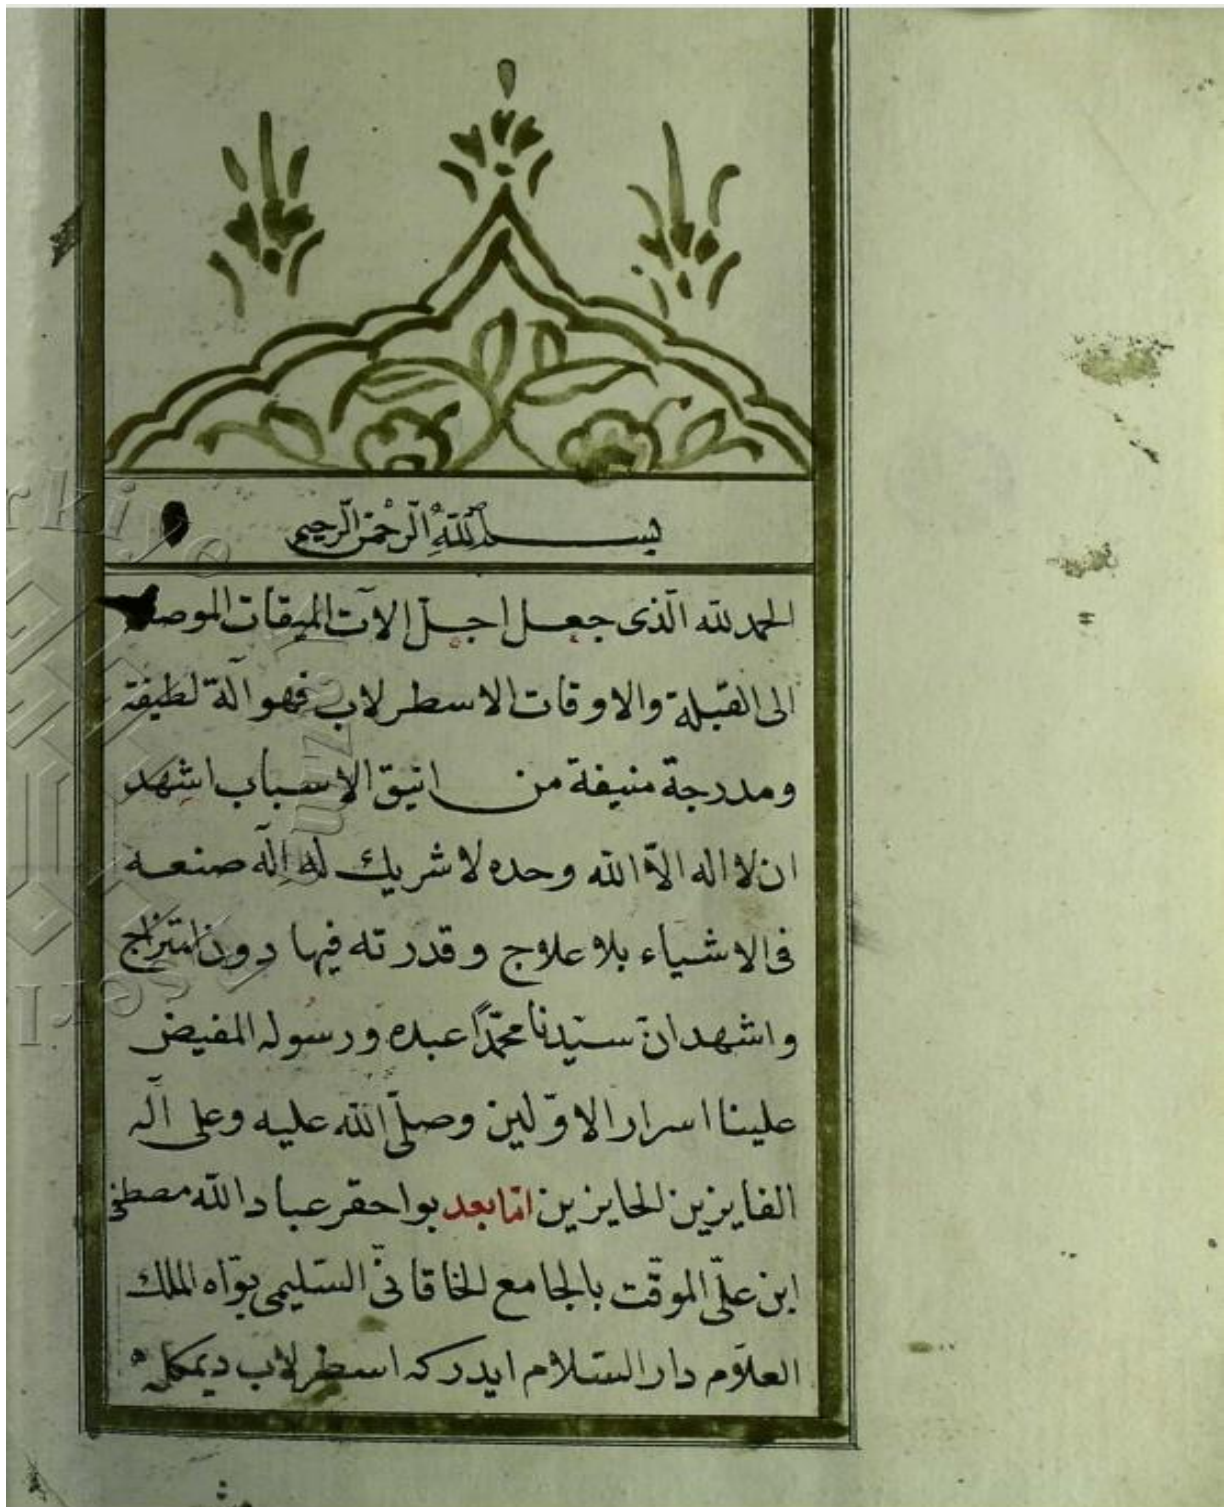 بسم الله الرّحمن الرّحيم
الحمد لله الّذى جعل اجلّ الآت الميقات الموصلة
الى القبلة والاوقات الاسطرلاب فهو آلة لطيفة
ومدرجة منيفة من انيق الاسباب اشهد
ان لا اله الاّ الله وحده لا شريك له اِلٓه صنعه
فى الاشياء بلا علاج وقدرته فيها دون امتزاج
واشهد انّ سيّدنا محمّداً عبده ورسوله المفيض
علينا اسرار الاوّلين وصلّى الله عليه وعلى آله
الفايزين الحايزين امّا بعد بو احقر عباد الله مصطفى
ابن علىّ الموقّت بالجامع الخاقانىّ السّليمى بوّاه الملك
العلاّم دار السّلام ايدركه اسطرلاب ديمكله